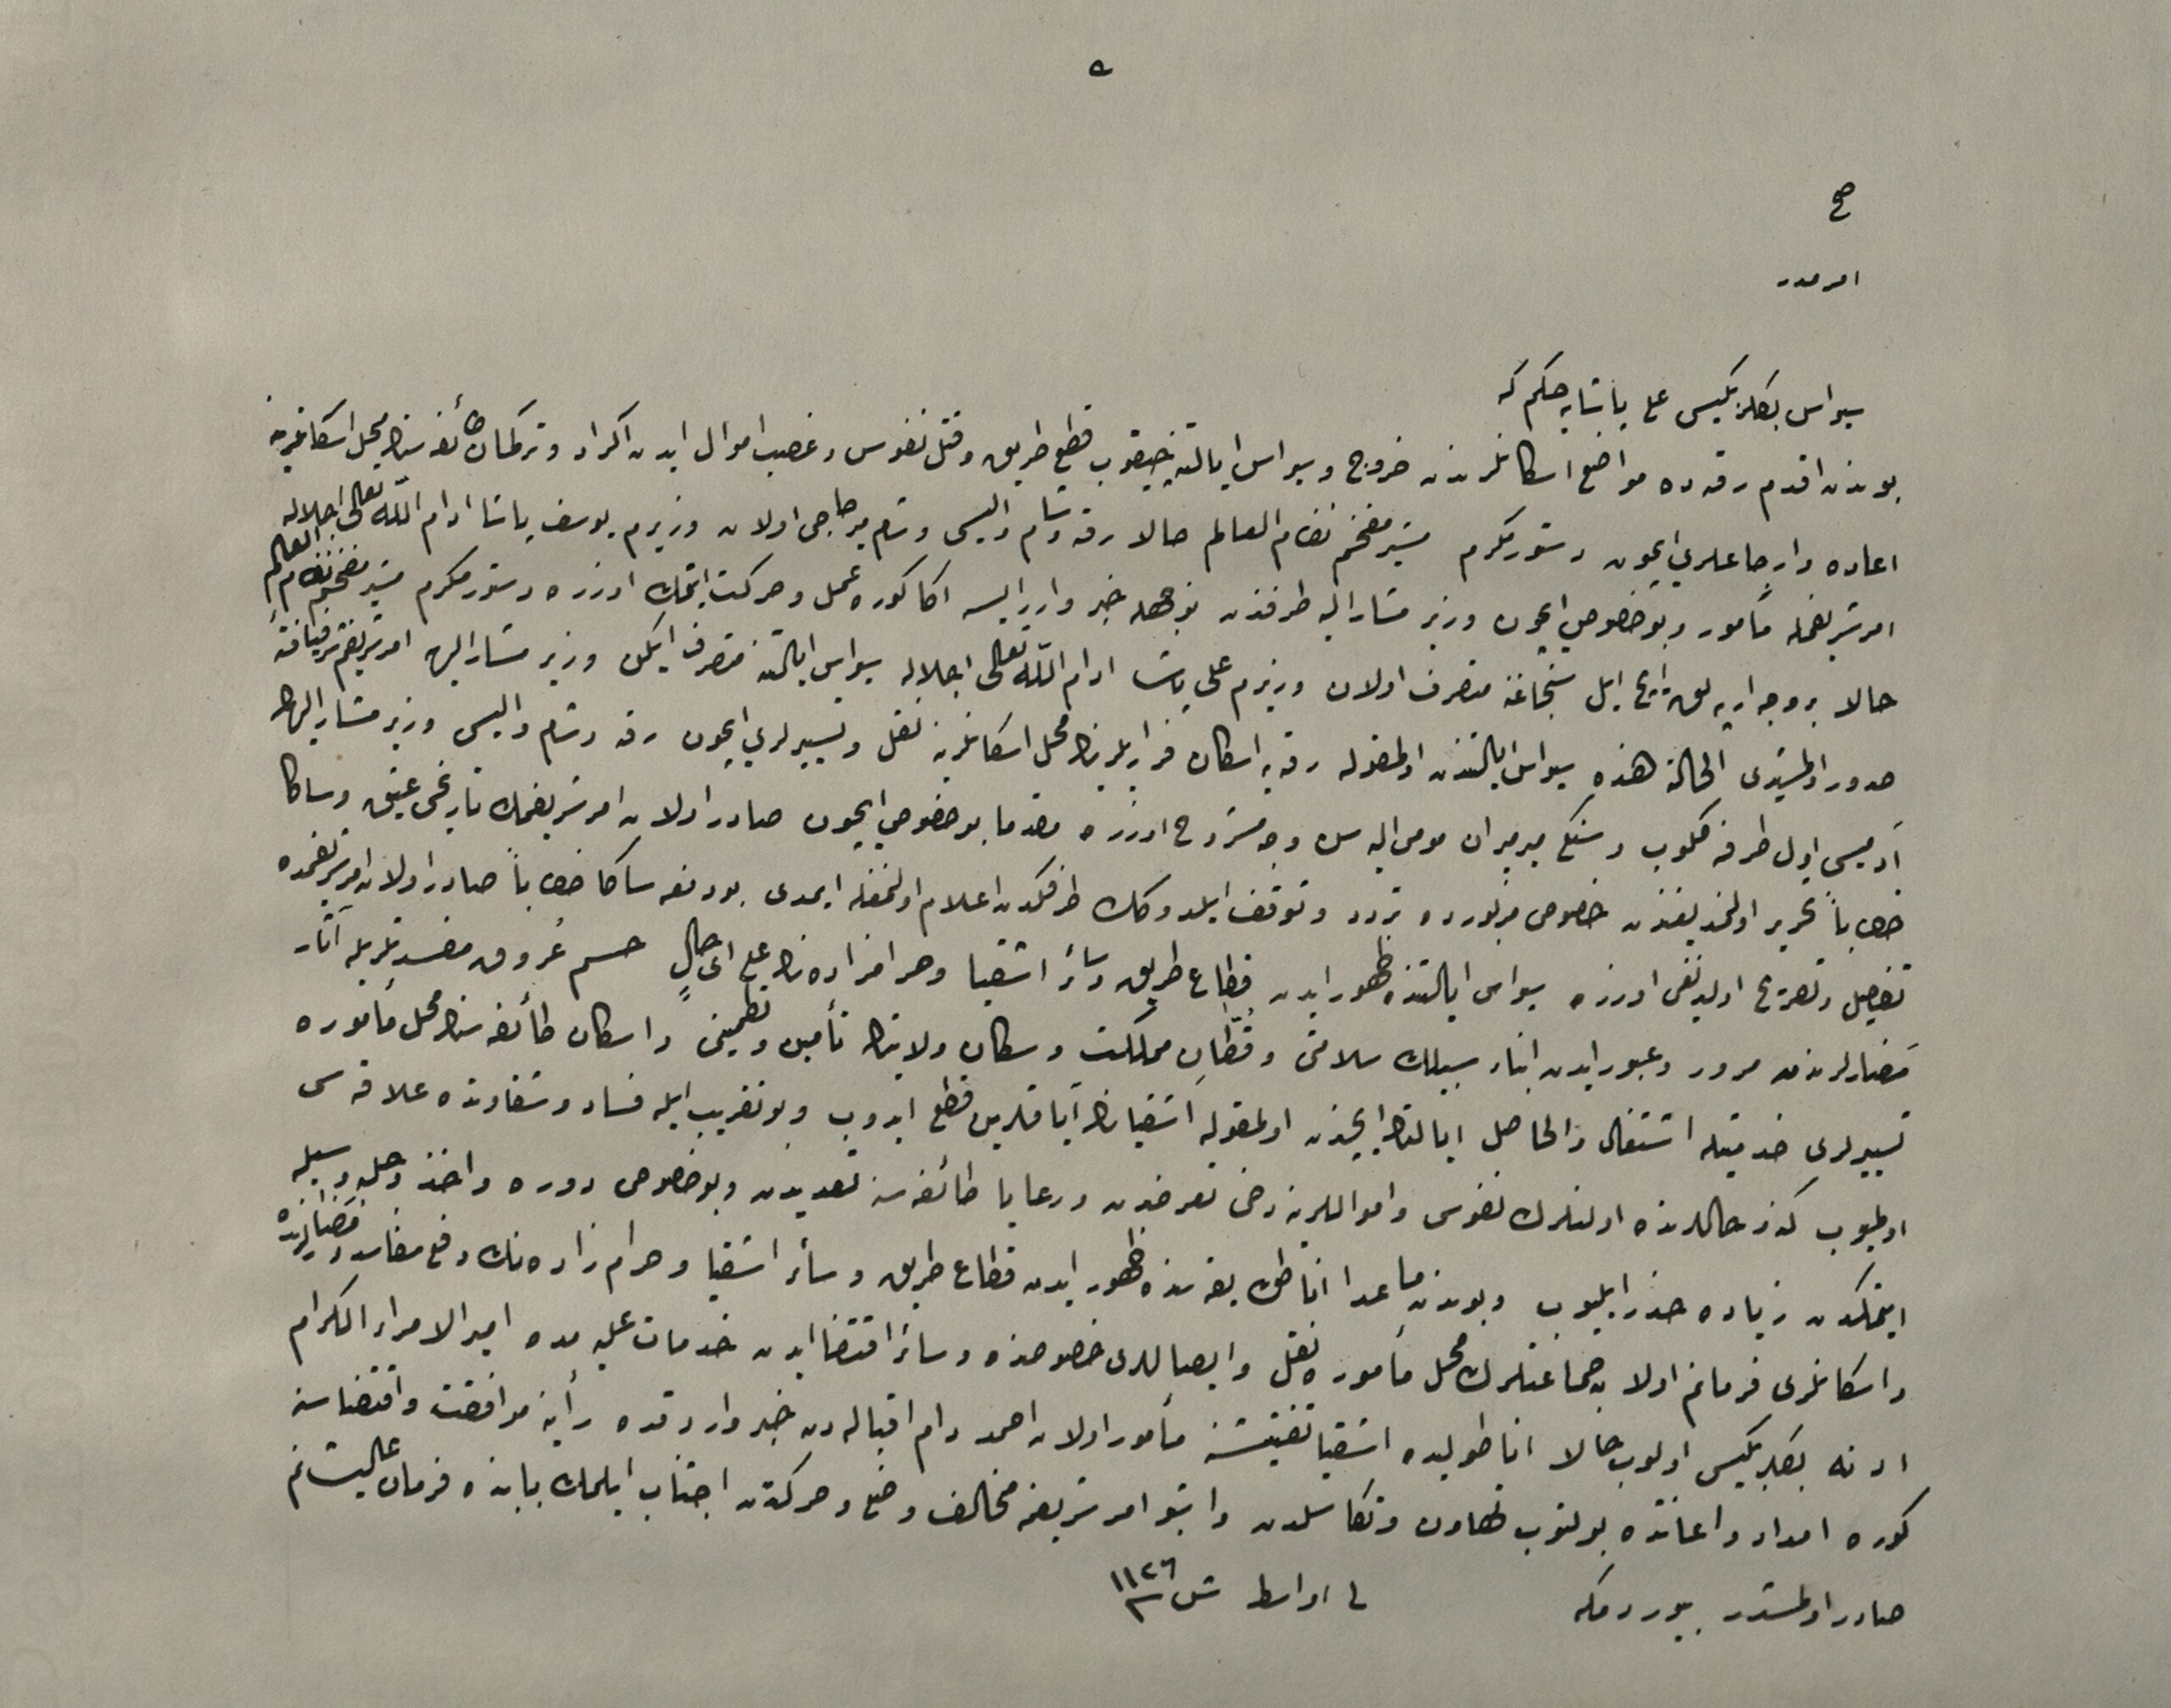 ے
صح
امر مدر
سيواس بكلربكيسى على پاشايه حكم كه
بوندن اقدم رقه ده مواضع اسكانلرندن خروج وسيواس ايالتنه چيقوب قطع طريق وقتل نفوس وغصب اموال ايدن اكراد وتركمان طائفه سنك محل اسكانلرينه
اعاده وارجاعلرى ايچون دستور مكرم مشير مفخم نظام العالم حالا رقه وشام واليسى وشام ميرحاجى اولان وزيرم يوسف پاشا ادام الله تعالى اجلاله
امر شريفمله مأمور وبو خصوص ايچون وزير مشار اليه طرفندن نوجهله خبر وارر ايسه اكا كوره عمل وحركت ايتمك اوزره دستور مكرم مشير مفخم نظام العالم
حالا بر وجه ارپه لق ايچ ايل سنجاغنه متصرف اولان وزيرم على پاشا ادام الله تعالى اجلاله سيواس ايالتنه متصرف ايكن وزير مشار اليه امر شريفم
صدور اولمشيدى الحالة هذه سيواس ايالتندن اولمقوله رقه يه اسكان فراريلرينك محل اسكانلرينه نقل وتسييرلرى ايچون رقه وشام واليسى وزير مشار اليهك
آدميسى اول طرفه كلوب وسنكه ميرميران مومى اليه سن وجه مشروح اوزره مقدما بو خصوص ايچون صادر اولان امر شريفمك تاريخى عتيق وساكا
خطاباً تحرير اولنمديغندن خصوص مزبورده تردد وتوقف ايلدوكك طرفكدن اعلام اولنمغله ايمدى بو دفعه ساكا خطاباً صادر اولان امر شريفمده
تفصيل وتصريح اولنديغى اوزره سيواس ايالتنده ظهور ايدن قطاع طريق وسائر اشقيا وحرامزاده نك على اى حالٍ حسم عروق مفسدتلريله آثار
مضارلرندن مرور وعبور ايدن ابناء سبيلك سلامتى وقطّان مملكت وسكان ولايتك تأمين وتطمينى واسكان طائفه سنك محل مأموره
تسييرلرى خدمتيله اشتغال والحاصل ايالتك ايچندن اولمقوله اشقيانك اياقلرين قطع ايدوب وبو تقريب ايله فساد وشقاوتده علاقه سى
اولميوب كندو حاللرنده اولنلرك نفوس وامواللرينه دخى تعرضدن ورعايا طائفه سنه تعديدن وبو خصوصى دوره واخذ وجلبه وسيله
ايتمكدن زياده حذر ايليوب وبوندن ماعدا اناطولينك يقه سنده ظهور ايدن قطاع طريق وسائر اشقيا وحرام زاده نك دفع مفاسد ومضارلرنده
واسكانلرى فرمانم اولان جماعتلرك محل مأموره نقل وايصاللرى خصوصنده وسائر اقتضا ايدن خدمات عليه مده امير الامراء الكرام
ادنه بكلربكيسى اولوب حالا اناطوليده اشقيا تفتيشنه مأمور اولان احمد دام اقباله دن خبر وارد قده رأينه موافقت واقتضاسنه
كوره امداد واعانتده بولنوب تهاون وتكاسلدن واشبو امر شريفه مخالف وضع وحركتدن اجتناب ايلمك بابنده فرمان عاليشانم
صادر اولمشدر بيوردمكه فى اواسط ش سنه ١١٢٦